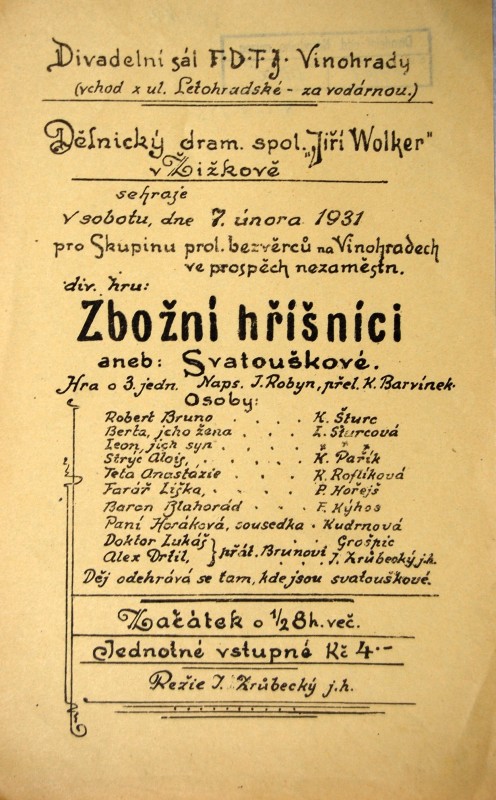 Divadelní sál F.D.T.J. Vinohrady
(vchod z ul. Letohradské - za vodárnou.)
Dělnický dram. spol. "Jiří Wolker"
v Žižkově
sehraje
v sobotu, dne 7. února 1931
pro Skupinu prol. bezvěrců na Vinohradech
ve prospěch nezaměstn.
div. hru:
Zbožní hříšníci
aneb: Svatouškové.
Hra o 3. jedn. Naps. J. Robyn, přel. K. Barvínek.
Osoby:
Robert Bruno . . . . K. Šturc
Berta, jeho žena . . . . L. Šturcová
Leon, jich syn . . . . * * *
Strýc Alois, . . . . K. Pařík
Teta Anastazie . . . K. Roflíková
Farář Liška, . . . . P. Hořejš
Baron Blahorád . . . F. Kýhos
Paní Horáková, sousedka . Kudrnová
Doktor Lukáš } přát. Brunovi . . Grošpic
Alex Drtil, } . . J. Zrůbecký j.h.
Děj odehrává se tam, kde jsou svatouškové.
Začátek o 1/2 8 h. več.
Jednotné vstupné Kč 4.-
Režie J. Zrůbecký j.h.